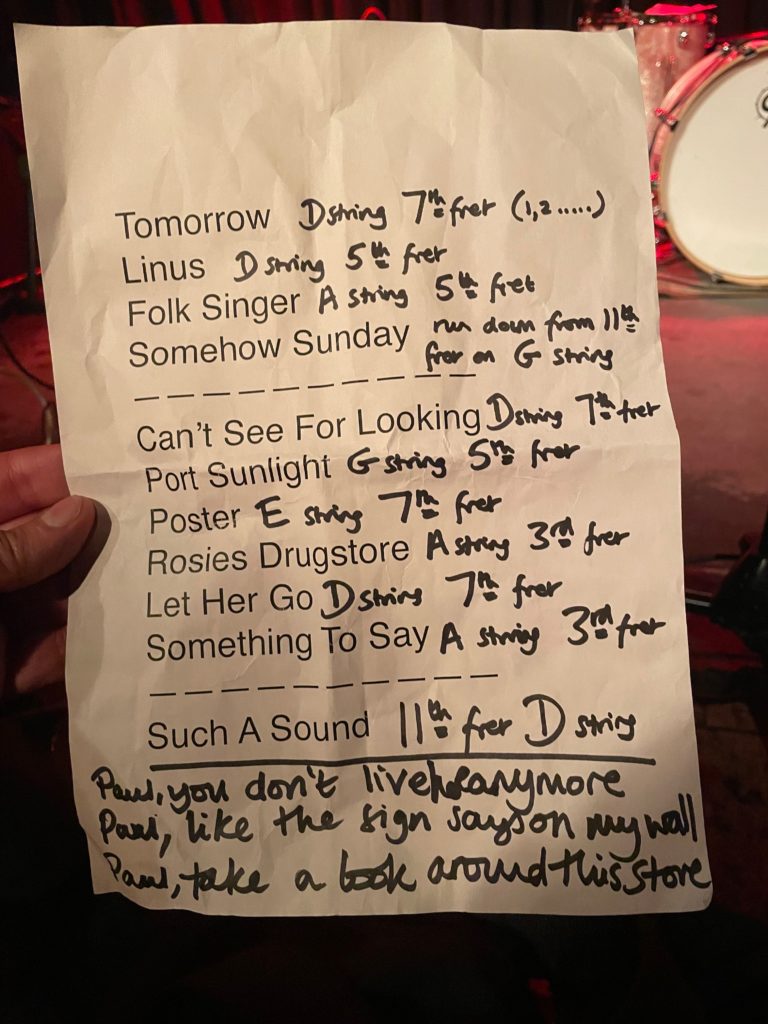 Tomorrow D string 7th fret (1,2.....)
Linus D string 5th fret
Folk Singer A string 5th fret
Somehow Sunday run down from 11th
fret on G string
Can't See For Looking D string 7th fret
Port Sunlight G string 5th fret
Poster E string 7th fret
Rosies Drugstore A string 3rd fret
Let Her Go D string 7th fret
Something To Say A string 3rd fret
Such A Sound 11th fret D string
Paul, you don't live here anymore
Paul, like the sign says on my wall
Paul, take a look around this store